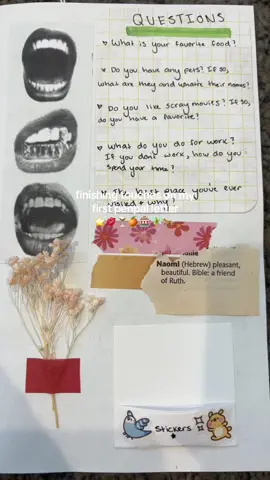 QUESTIONS
♥ What is your favorite food?
♥ Do you have any pets? If so,
what are they and whats their names?
♥ Do you like scray movies? If so,
do you have a favorite?
♥ What do you do for work?
If you don't work, how do you
spend your time?
finishing touches on my
first penpal letter
♥ The best place you've ever
visited & why?
Naomi (Hebrew) pleasant,
beautiful. Bible: a friend
of Ruth.
Stickers